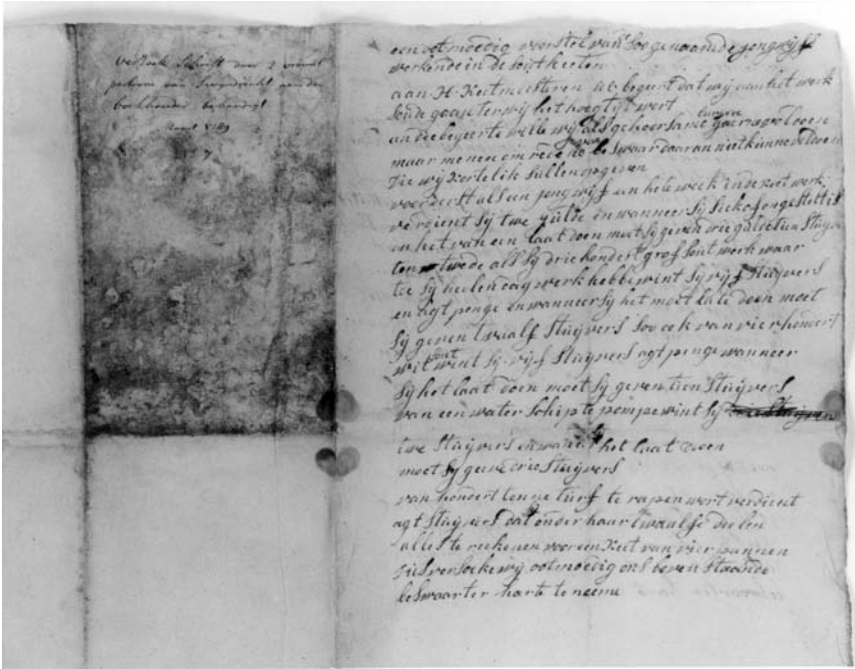 versoek Schrift door 2 vrouws
persoon van Sirjansland aan den
boekhouder behandigt
Maart 1789
een ootmoedig voorstel van Soogenaamde jongwijfs
werkende in de Sout keeten
aan H. Keetmeesteren UE begeert dat wij aan het werk
Soude gaan terwij het hoog tijt wert
an die begeerte wille wij als gehoorsame gaerne voldoen
maar me nee om rede no beswaar daar an niet kunne voldoen
Die wij Kortelik Sullen opgeven
voor eerst als een jong wijf een hele week in de keet werk
verdient Sij twe gulde en wanneer Sij Siek of ongestelt is
en het van een laat doen moet Sij geven drie gulde tien Stuyvers
ten twede als Sij drie hondert grof Sout werk waar
toe Sij heelen dag werk hebbe wint Sij vijf Stuijvers
en agt penge en wanneer Sij het moet late doen moet
Sij geven twaalf Stuijvers Soo ook van vier hondert
wit Sout wint Sij vijf Stuijvers agt penge wanneer
Sij het laat doen moet Sij geven tien Stuijvers
van een water Schip te pompe wint Sij drie Stuijvers
twe Stuijvers en het laat doen
moet Sij geeve drie Stuijvers
van hondert tonne turf te rapen wort verdient
agt Stuijvers dat onder haar twaalfe deelen
alles te reekenen voor een Keet van vier pannen
Dus versoeke wij ootmoedig ons boven Staande
beswaar ter harte te neeme